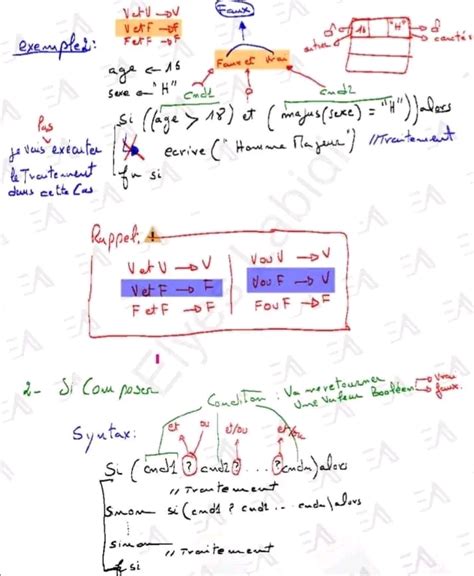 V et V → V
V et F → F
F et F → F
Faux
exemple 2:
Faux et Vrai
age ← 16
sexe ← "H"
16 "H"
cnd1 cnd2
Si ((age > 18) et (majus(sexe) = "H")) alors
ecrive ("Homme Majeur") // Traitement
fin si
Pas
je vais exécuter
le Traitement
dans cette Cas
Rappel:
V et V → V
V et F → F
F et F → F
V ou V → V
V ou F → V
F ou F → F
Elyes Labidi
2- Si Composer
Condition : Va me retourner
Une Valeur Booléen → Vrai
→ faux.
Syntax:
et ou et/ou et/ou
Si (cnd1 ? cnd2 ? ... cndn) alors
// Traitement
Sinon si (cnd1 ? cnd2 .. cndn) alors
sinon
// Traitement
fsi